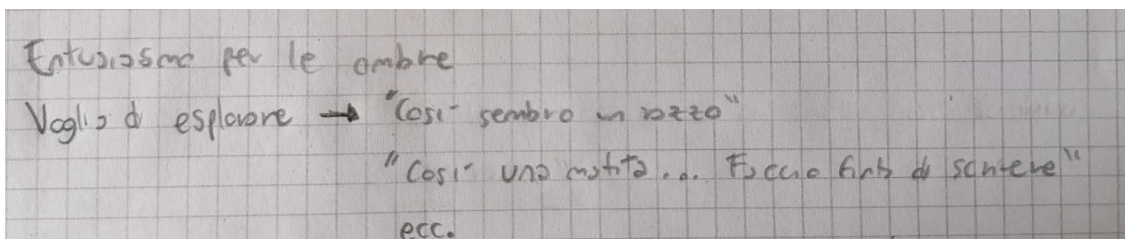 Entusiasmo per le ombre
Voglia di esplorare → "Così sembro un razzo"
"Così una matita... Faccio finta di scrivere"
ecc.